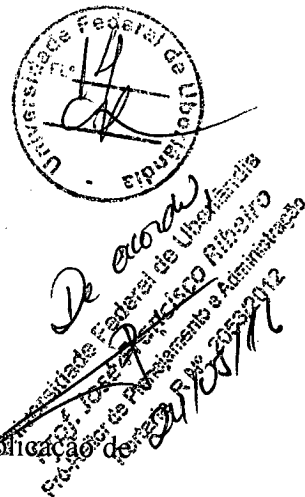 Universidade Federal de Uberlândia
Fls.
De acordo
Universidade Federal de Uberlândia
Prof. José Francisco Ribeiro
Pró-Reitor de Planejamento e Administração
Portaria R Nº 2053/2012
blicação de